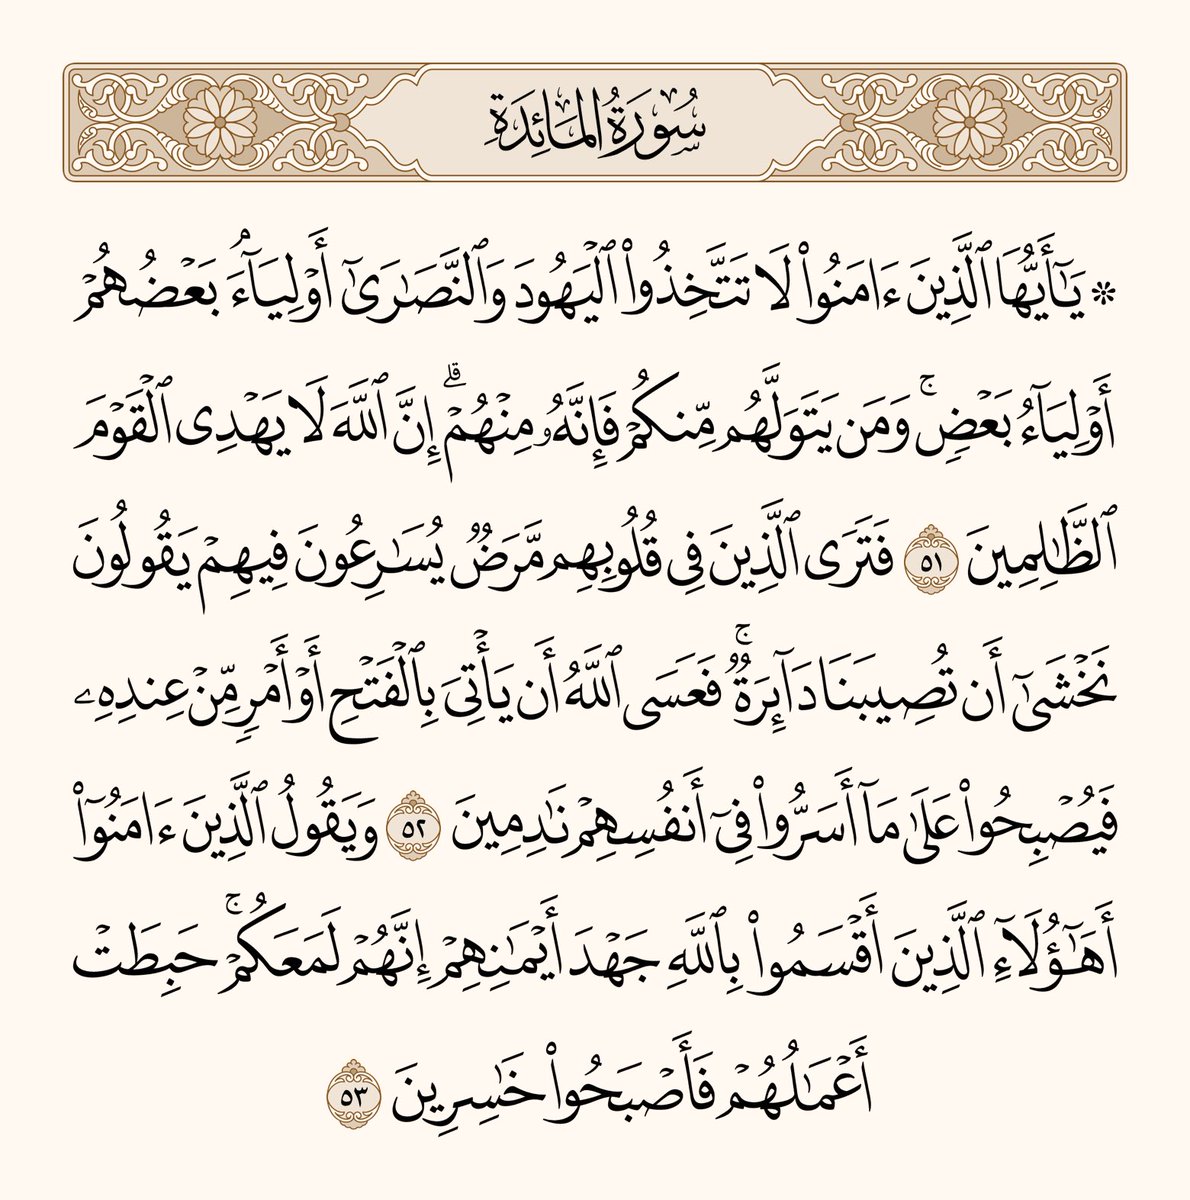 سُورَةُ المَائِدَةِ
۞ يَـٰٓأَيُّهَا ٱلَّذِينَ ءَامَنُوا۟ لَا تَتَّخِذُوا۟ ٱلْيَهُودَ وَٱلنَّصَـٰرَىٰٓ أَوْلِيَآءَ ۘ بَعْضُهُمْ
أَوْلِيَآءُ بَعْضٍ ۚ وَمَن يَتَوَلَّهُم مِّنكُمْ فَإِنَّهُۥ مِنْهُمْ ۗ إِنَّ ٱللَّهَ لَا يَهْدِى ٱلْقَوْمَ
ٱلظَّـٰلِمِينَ ٥١ فَتَرَى ٱلَّذِينَ فِى قُلُوبِهِم مَّرَضٌ يُسَـٰرِعُونَ فِيهِمْ يَقُولُونَ
نَخْشَىٰٓ أَن تُصِيبَنَا دَآئِرَةٌ ۚ فَعَسَى ٱللَّهُ أَن يَأْتِىَ بِٱلْفَتْحِ أَوْ أَمْرٍ مِّنْ عِندِهِۦ
فَيُصْبِحُوا۟ عَلَىٰ مَآ أَسَرُّوا۟ فِىٓ أَنفُسِهِمْ نَـٰدِمِينَ ٥٢ وَيَقُولُ ٱلَّذِينَ ءَامَنُوٓا۟
أَهَـٰٓؤُلَآءِ ٱلَّذِينَ أَقْسَمُوا۟ بِٱللَّهِ جَهْدَ أَيْمَـٰنِهِمْ إِنَّهُمْ لَمَعَكُمْ ۚ حَبِطَتْ
أَعْمَـٰلُهُمْ فَأَصْبَحُوا۟ خَـٰسِرِينَ ٥٣